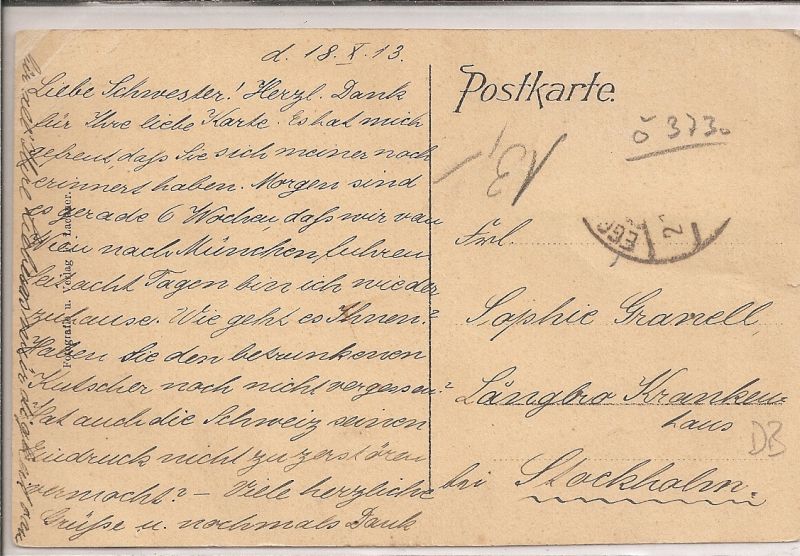 d. 18. X. 13.
Liebe Schwester! Herzl. Dank
für Ihre liebe Karte. Es hat mich
gefreut, daß Sie sich meiner noch
erinnert haben. Morgen sind
es gerade 6 Wochen, daß wir von
Wien nach München fuhren
Seit acht Tagen bin ich wieder
zuhause. Wie geht es Ihnen?
Haben Sie den betrunkenen
Kutscher noch nicht vergessen?
Hat auch die Schweiz seinen
Eindruck nicht zu zerstören
vermocht? – Viele herzliche
Grüße u. nochmals Dank
Fotografie u. Verlag Lachner.
Postkarte.
ö 373.
13,-
EGG
2
Frl.
Sophie Granell,
Långbro Kranken-
haus
bei Stockholm.
DB